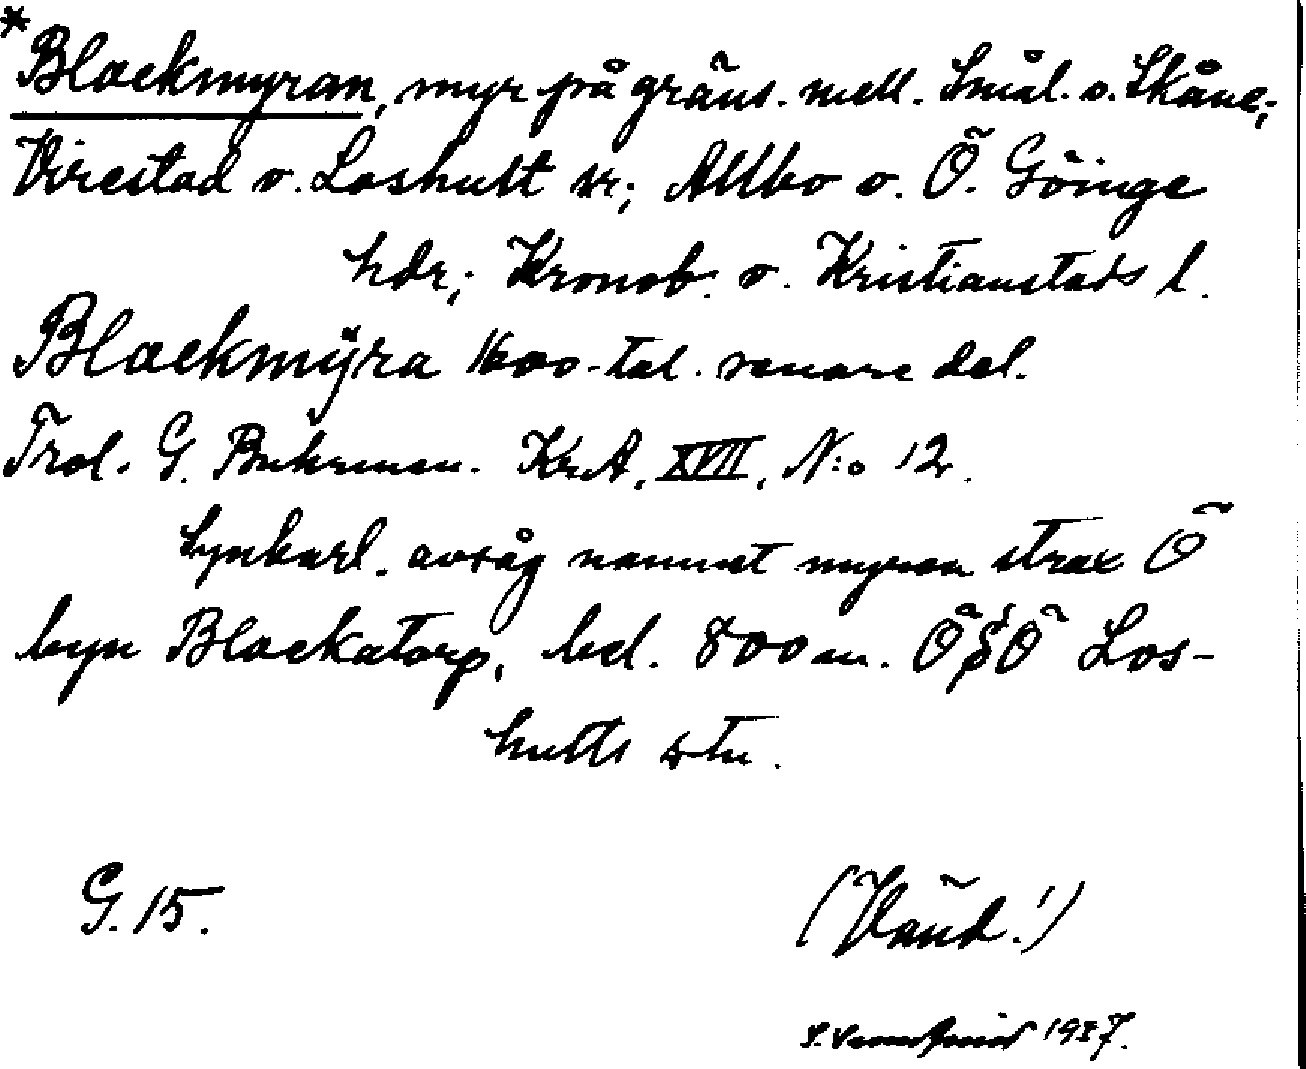 *Blackmyran, myr på gräns. mell. Smål. o. Skåne;
Virestad o. Loshult sr; Allbo o. Ö. Göinge
hdr; Kronob. o. Kristianstads l.
Blackmÿra 1600-tal. senare del.
Trol. G. Buhrman. KrA, XVII, N:o 12.
Synbarl. avsåg namnet myren strax Ö
byn Blackatorp, bel. 800 m. ÖSÖ Los-
hults stn.
G. 15.
(Vänd!)
1937.